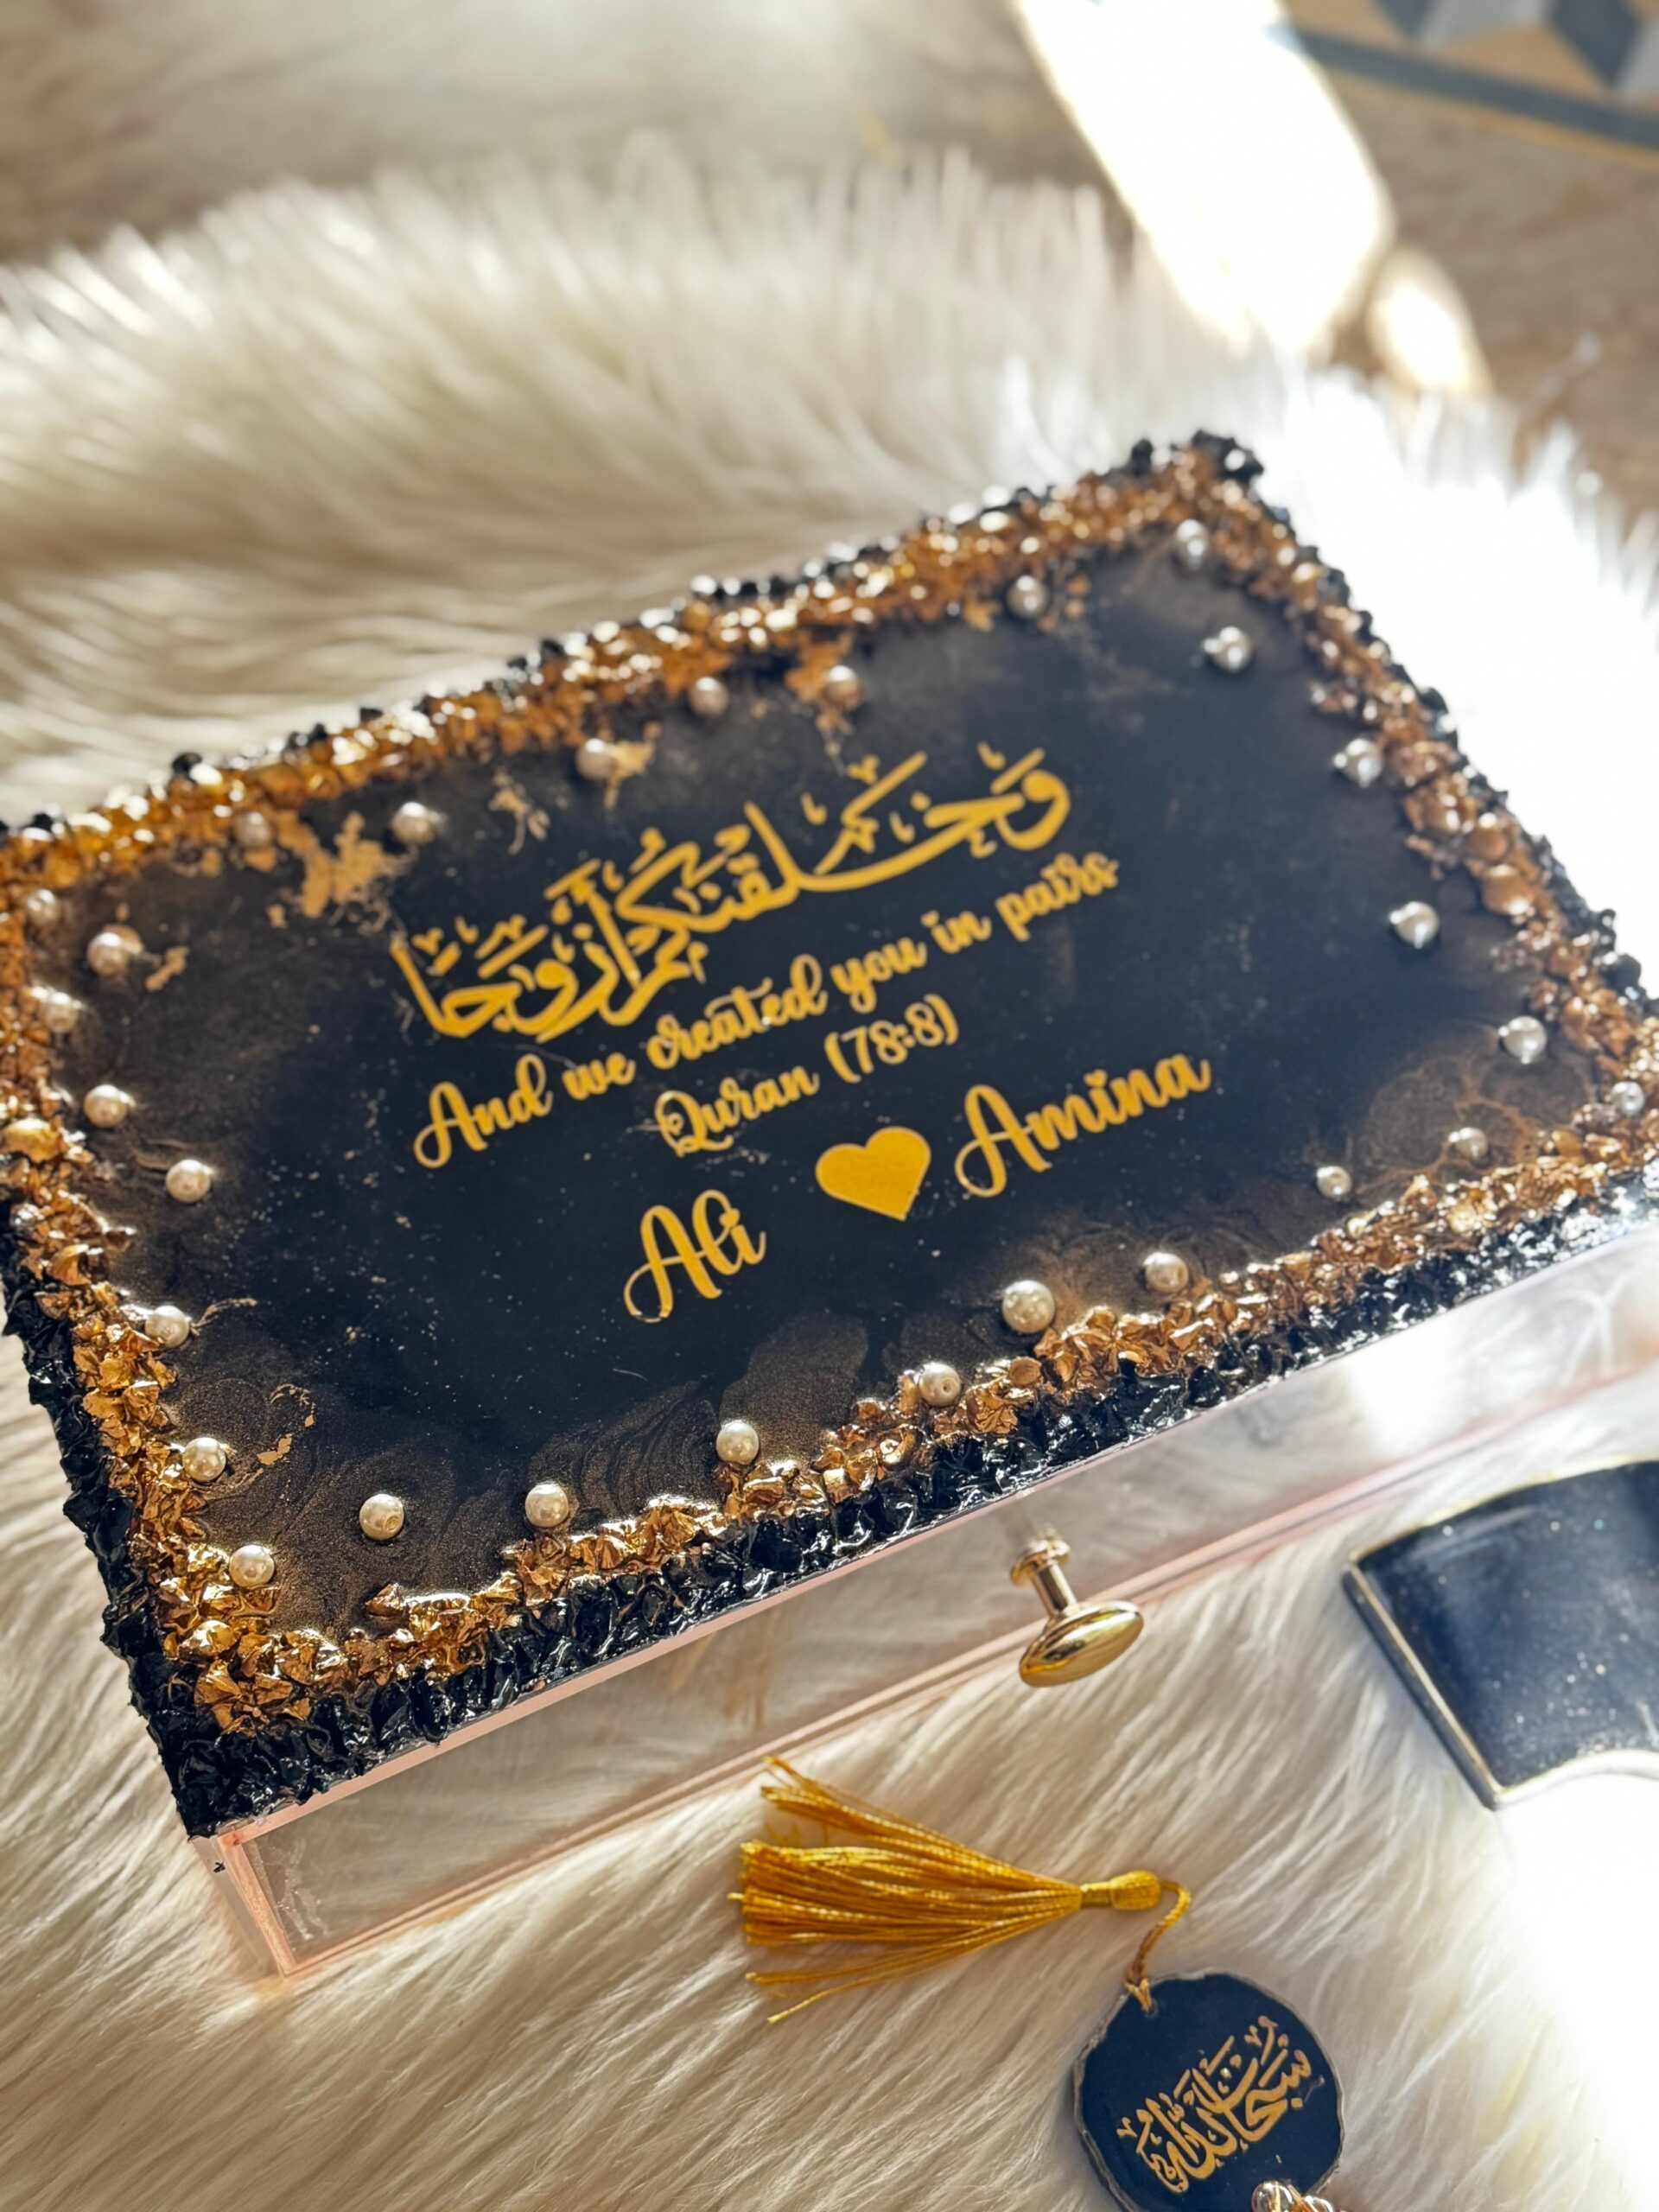 وَخَلَقْنَٰكُمْ أَزْوَٰجًا
And we created you in pairs
Quran (78:8)
Ali ♥ Amina
سبحان الله